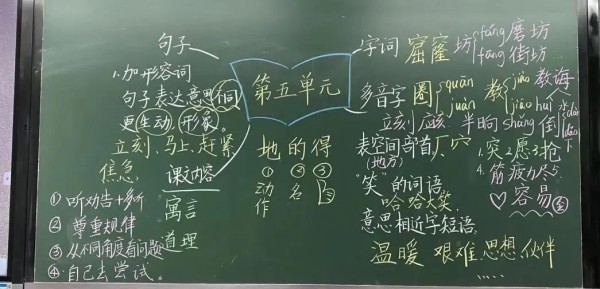 第五单元
句子
1.加形容词
句子表达意思不同
更生动 形象
立刻、马上、赶紧
焦急
课文内容
①听劝告+多听
②尊重规律
③从不同角度看问题
④自己去尝试。
寓言
道理
地 的 得
① ② ③
动 名
作
字词 窟窿 坊 fáng 磨坊
fāng 街坊
多音字 圈 quān
juàn
教 jiào 教诲 huì
jiāo
立刻 应该 半晌 shǎng 倒 dào
dǎo 下
表空间部首厂、穴
(地方)
1.突 2愿 3.抢
4.筋疲力尽 5.
容易
"笑"的词语
哈哈大笑
意思相近字短语
温暖 艰难 思想、伙伴
......